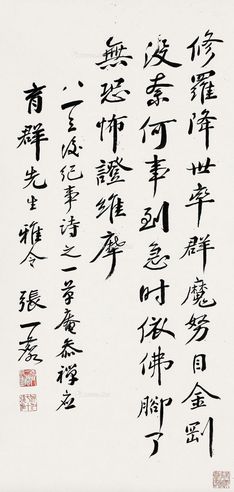 修羅降世率群魔努目金剛
没奈何事到急时依佛腳了
無恐怖證維摩
八一三後紀事诗之一草庵恭禪应
育群先生雅令 張一麐